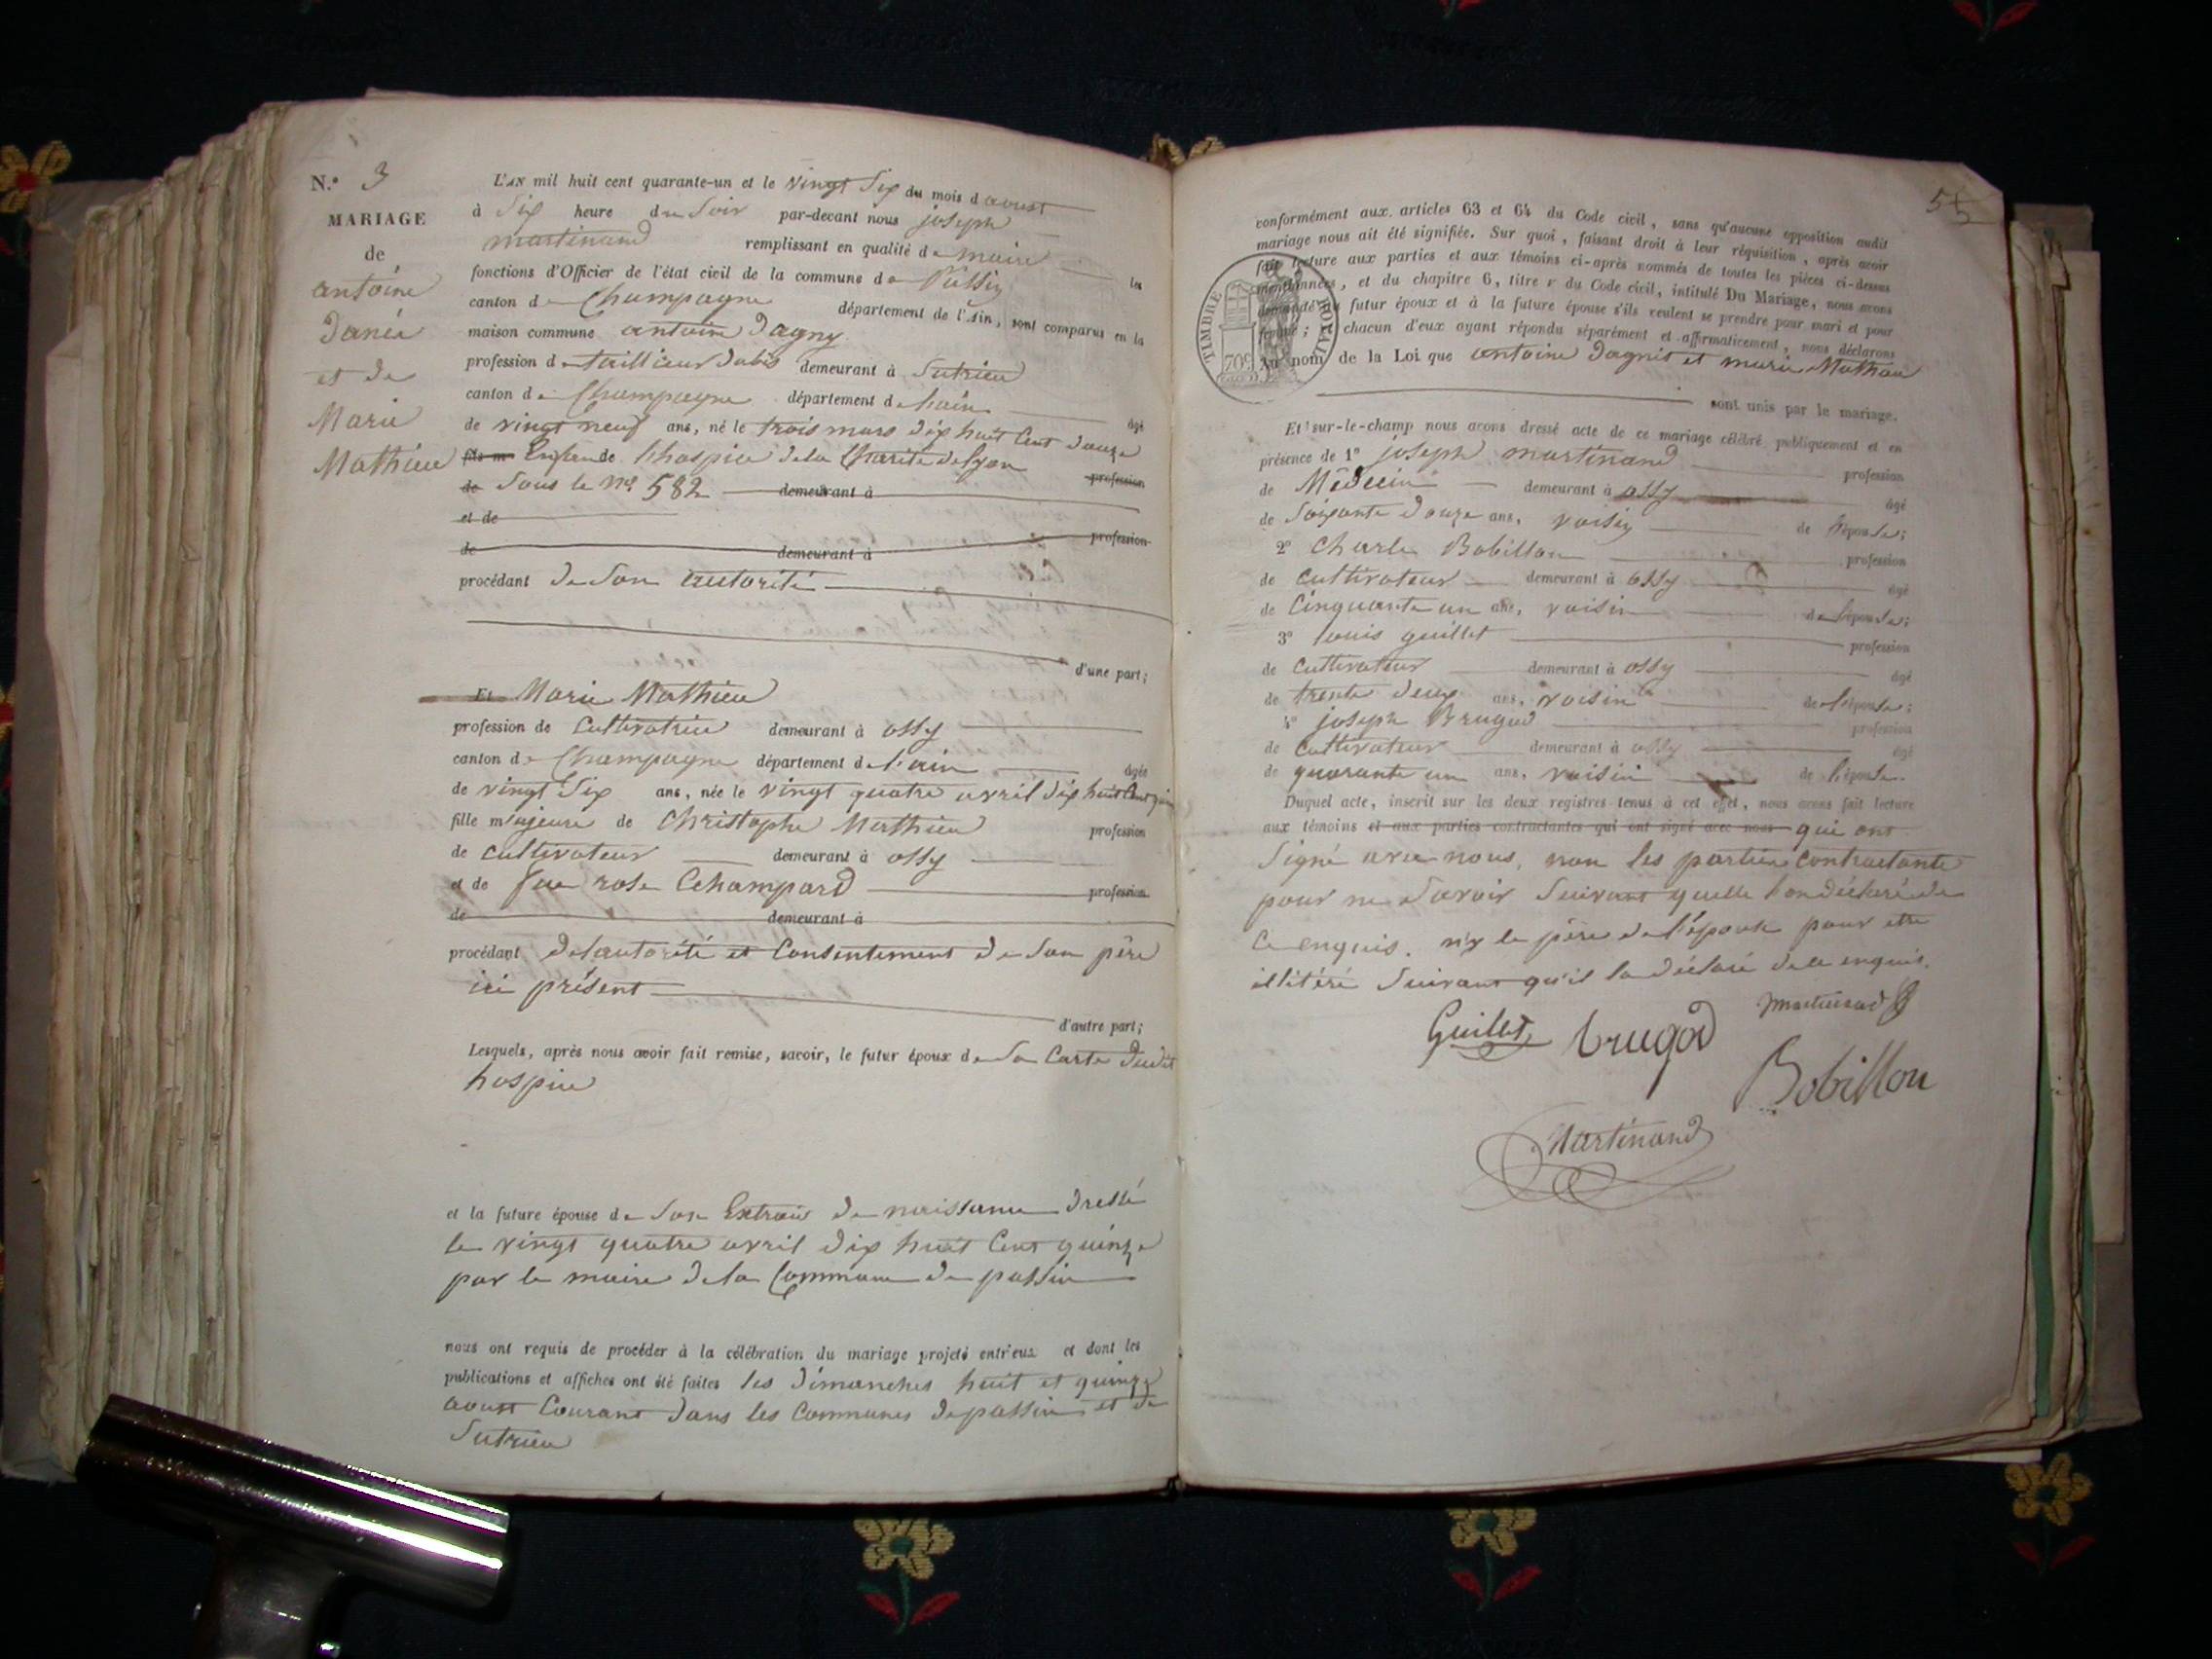 N.° 3
MARIAGE
de
antoine
Danée
et de
Marie
Mathieu
L'AN mil huit cent quarante-un et le vingt Six du mois d aoust
à Six heure du Soir par-devant nous joseph
martinand remplissant en qualité de maire les
fonctions d'Officier de l'état civil de la commune de Passin
canton de Champagne département de l'Ain, sont comparus en la
maison commune antoine Dagny
profession de taillieur dabis demeurant à Sutrieu
canton de Champagne département de lain âgé
de vingt neuf ans, né le trois mars dix huit Cent douze
fils m Enfan de lhospice dela Charité de lyon profession
de Sous le n° 582 demeurant à
et de
de demeurant à profession
procédant de Son autorité
d'une part;
Et Marie Mathieu
profession de Cultivatrice demeurant à ossy
canton de Champagne département de l'ain âgée
de vingt Six ans, née le vingt quatre avril dix huit Cent quinze
fille majeure de Christophe Mathieu profession
de Cultivateur demeurant à ossy
et de rose Champard profession
de demeurant à
procédant del'autorité et Consentement de Son père
ici présent
d'autre part;
Lesquels, après nous avoir fait remise, savoir, le futur époux de Sa Carte dudit
hospice
et la future épouse de Son Extrait de naissance dressé
le vingt quatre avril dix huit Cent quinze
par le maire dela Commune de passin
nous ont requis de procéder à la célébration du mariage projeté entr'eux et dont les
publications et affiches ont été faites les dimanches huit et quinze
aoust Courant dans les Communes de passin et de
Sutrieu
55
conformément aux articles 63 et 64 du Code civil, sans qu'aucune opposition audit
mariage nous ait été signifiée. Sur quoi, faisant droit à leur réquisition, après avoir
fait lecture aux parties et aux témoins ci-après nommés de toutes les pièces ci-dessus
mentionnées, et du chapitre 6, titre v du Code civil, intitulé Du Mariage, nous avons
demandé au futur époux et à la future épouse s'ils veulent se prendre pour mari et pour
femme; chacun d'eux ayant répondu séparément et affirmativement, nous déclarons
Au nom de la Loi que antoine dagnit et marie Mathieu
TIMBRE ROYAL
70c
sont unis par le mariage.
Et sur-le-champ nous avons dressé acte de ce mariage célébré publiquement et en
présence de 1° joseph martinand profession
de Médecin demeurant à ossy âgé
de Soixante douze ans, voisin de l'épouse;
2° Charle Bobillon profession
de Cultivateur demeurant à ossy âgé
de Cinquante un ans, voisin de l'épouse;
3° louis guillet profession
de Cultivateur demeurant à ossy âgé
de trente deux ans, voisin de l'épouse;
4° joseph Brugod profession
de Cultivateur demeurant à ossy âgé
de quarante un ans, voisin de l'épouse.
Duquel acte, inscrit sur les deux registres tenus à cet effet, nous avons fait lecture
aux témoins et aux parties contractantes qui ont signé avec nous qui ont
Signé avec nous, non les parties Contractante
pour ne Savoir Suivant quelle l'on déclaré de
Ce enquis. n'y le père de l'épouse pour etre
illitéré Suivant qu'il la déclaré de ce enquis.
Guillet brugod martinand
Bobillon
Martinand